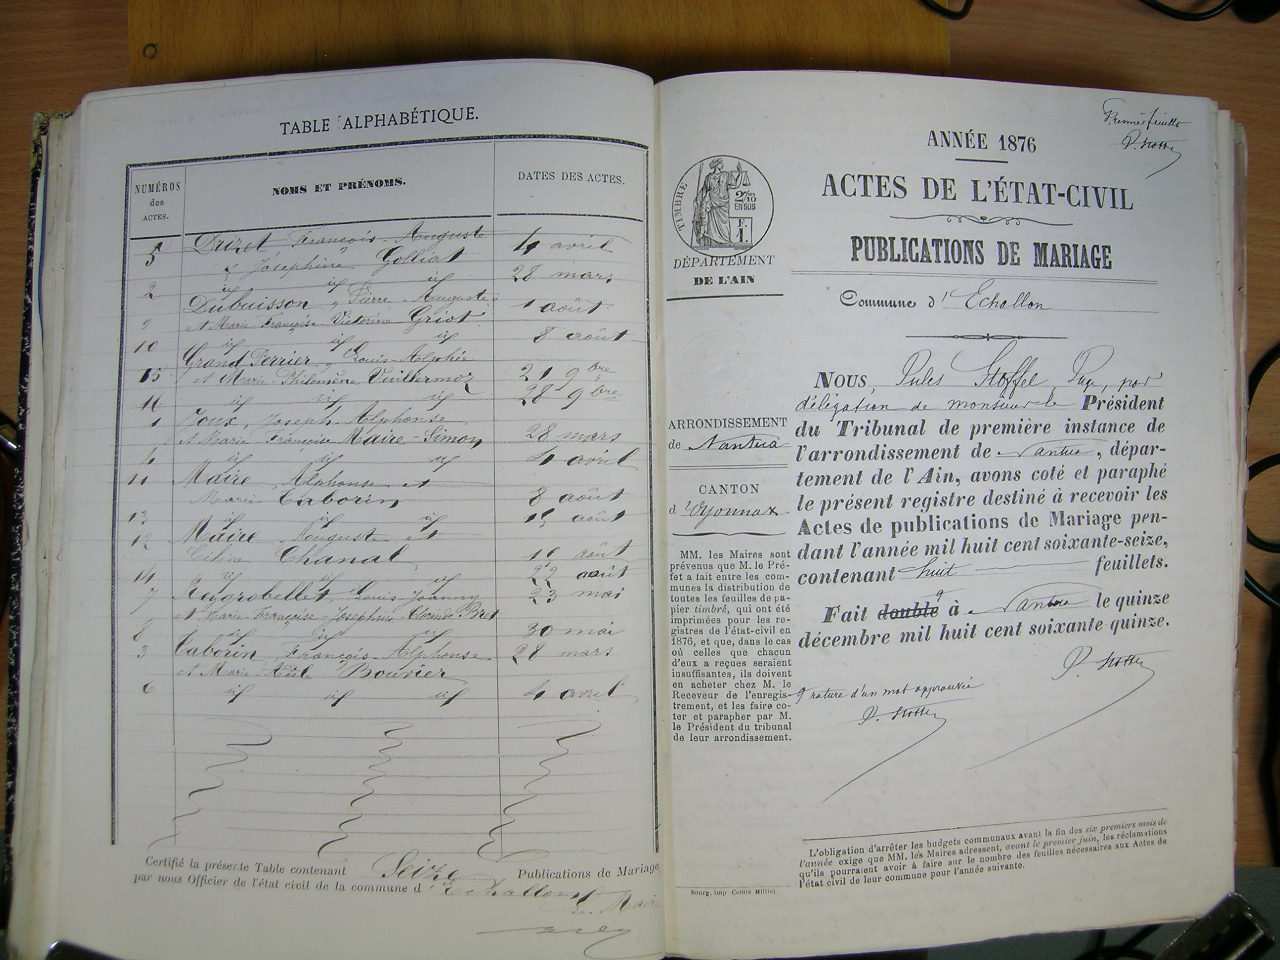 TABLE ALPHABÉTIQUE.
NUMÉROS
des
ACTES.
NOMS ET PRÉNOMS.
DATES DES ACTES.
5 François Auguste 4 avril
et Joséphine Golliat
2 id id id 28 mars
Dubuisson, Pierre Auguste
9 et Marie Françoise Victorine Griot 1 août
10 id id id 8 août
Grand Perrier, Louis Alphée
15 et Marie Philomène Vuillermoz 21 9bre
16 id id id 28 9bre
Joux, Joseph Alphonse
1 et Marie Françoise Maire-Simon 28 mars
4 id id id 4 avril
11 Maire Alphonse et
Marie Taborin 8 août
13 id id id 15 août
12 Maire August et
Chanal 15 août
14 id id id 22 août
7 Louis Joanny 23 mai
et Marie Françoise Joséphine
8 id id id 30 mai
3 Taborin, François Alphonse 28 mars
et Marie Bouvier
6 id id id 4 avril
Certifié la présente Table contenant Seize Publications de Mariage
par nous Officier de l'état civil de la commune d'Echallon
Le Maire
Première feuille
P. Stoffel
ANNÉE 1876
ACTES DE L'ÉTAT-CIVIL
PUBLICATIONS DE MARIAGE
TIMBRE
2/10
EN SUS
DÉPARTEMENT
DE L'AIN
Commune d'Echallon
ARRONDISSEMENT
de Nantua
CANTON
d'Oyonnax
MM. les Maires sont
prévenus que M. le Pré-
fet a fait entre les com-
munes la distribution de
toutes les feuilles de pa-
pier timbré, qui ont été
imprimées pour les re-
gistres de l'état-civil en
1876, et que, dans le cas
où celles que chacun
d'eux a reçues seraient
insuffisantes, ils doivent
en acheter chez M. le
Receveur de l'enregis-
trement, et les faire co-
ter et parapher par M.
le Président du tribunal
de leur arrondissement.
NOUS, Jules Stoffel, Juge, par
délégation de monsieur le Président
du Tribunal de première instance de
l'arrondissement de Nantua, dépar-
tement de l'Ain, avons coté et paraphé
le présent registre destiné à recevoir les
Actes de publications de Mariage pen-
dant l'année mil huit cent soixante-seize,
contenant huit feuillets.
Fait double à Nantua le quinze
décembre mil huit cent soixante quinze.
P. Stoffel
rature d'un mot approuvée
P. Stoffel
L'obligation d'arrêter les budgets communaux avant la fin des six premiers mois de
l'année exige que MM. les Maires adressent, avant le premier juin, les réclamations
qu'ils pourraient avoir à faire sur le nombre des feuilles nécessaires aux Actes de
l'état civil de leur commune pour l'année suivante.
Bourg, imp Comte Milliet